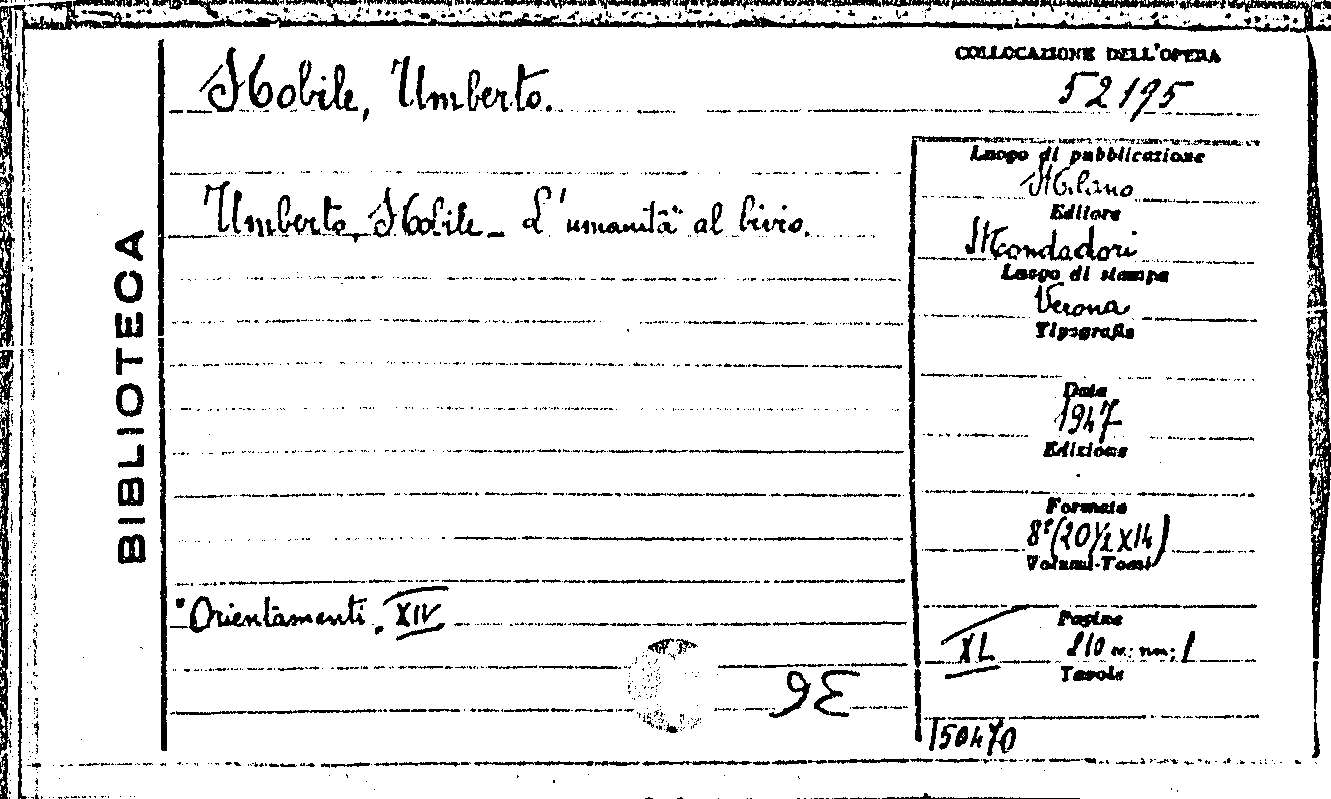 BIBLIOTECA
Nobile, Umberto.
Umberto Nobile - L'umanità al bivio.
"Orientamenti, XIV
COLLOCAZIONE DELL'OPERA
52195
Luogo di pubblicazione
Milano
Editore
Mondadori
Luogo di stampa
Verona
Tipografia
Data
1947
Edizione
Formato
8°(20½x14)
Volumi-Tomi
Pagine
XL 210 nn: 1
Tavole
150470